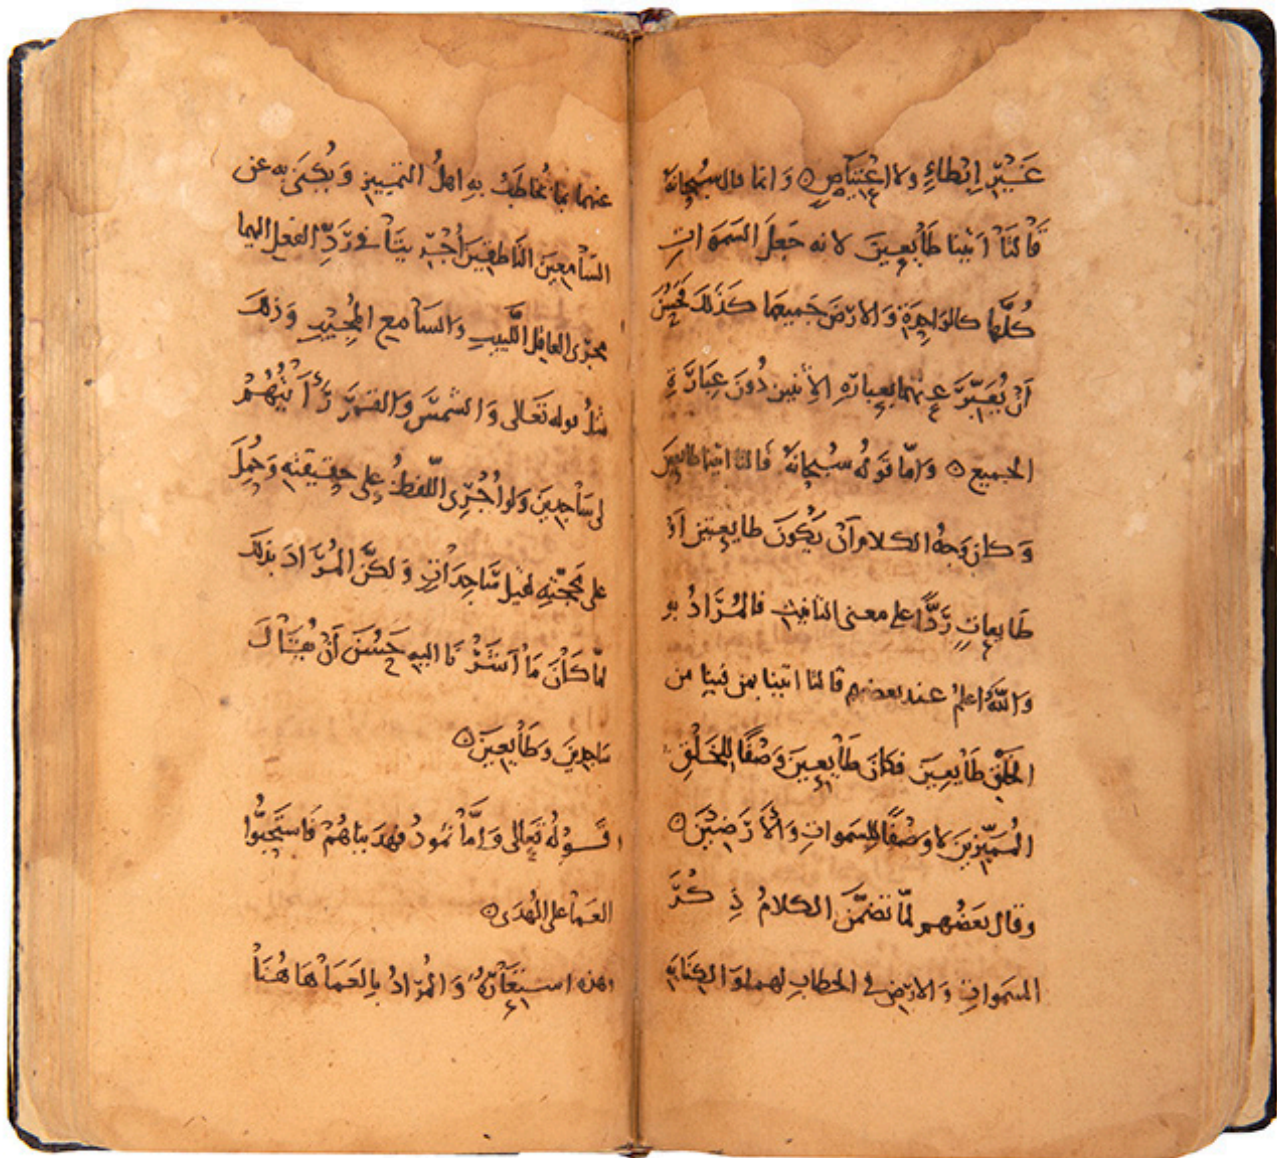 غَيْرِ إِبْطَاءٍ ولا اعْتِيَاصٍ ۝ وَانما قال سُبحانهُ
قَالَتَا أتينا طَايِعِينَ لانه جَعَلَ السَّمَوَاتِ
كُلَّهَا كالوَاحِدَةِ وَالارْضَ جَميعها كَذلكَ فَحَسُنَ
أَنْ يُعَبِّرَ عنهما بعِبارَةِ الاِثنين دُونَ عِبَارَةِ
الجميع ۝ وَامّا قَولُهُ سُبحانَهُ قَالتا اتينا طايعينَ
وَكان وَجهُ الكلام أنْ يَكُونَ طايعتين اَوْ
طَايعاتٍ رَدًّا على معنى التانيثِ فالمُرَادُ بهِ
وَاللهُ اعلمُ عند بعضهم قالتا اتينا بمن فينا من
الخَلْقِ طَايِعِينَ فكانَ طَايِعِينَ وَصْفًا لِلخَلْقِ
المُمَيِّزينَ لا وَصْفًا لِلسَمواتِ وَالأَرَضِينَ ۝
وقال بَعضُهم لمّا تضمَّنَ الكلامُ ذِكْرَ
السَمواتِ وَالارْضِ في الخطابِ لهما وَالكِنَايةِ
عنهما بما يُخاطَبُ بِهِ اهلُ التمييزِ وَيُكنَى به عن
السَّامِعِينَ النَّاطِقِينَ أُجْرِيَتَا في رَدِّ الفعل اليهما
مَجرَى العاقِلِ اللَّبيبِ وَالسَّامع المُجيبِ وَذلكَ
مثلُ قوله تَعَالى وَالشَّمسَ وَالقَمَرَ رَأَيْتُهُمْ
لي سَاجِدِينَ وَلو اُجْرِيَ اللَّفظُ على حَقيقَتِهِ وَحُمِلَ
على مَحجّتِهِ لقيل سَاجِدَاتٍ وَلكِنَّ المُرَادَ بذلكَ
لمّا كَانَ مَا أَشَرْنَا اليهِ حَسُنَ أَنْ يُقَالَ
سَاجِدِينَ وَطَايِعِينَ ۝
قَوْلُهُ تَعَالى وَأَمَّا ثَمودُ فهَدَيناهُمْ فَاستَحَبُّوا
العَمَا على الهُدَى ۝
وهذه استِعَارَةٌ وَالمُرَادُ بِالعَمَا هَاهُنَا